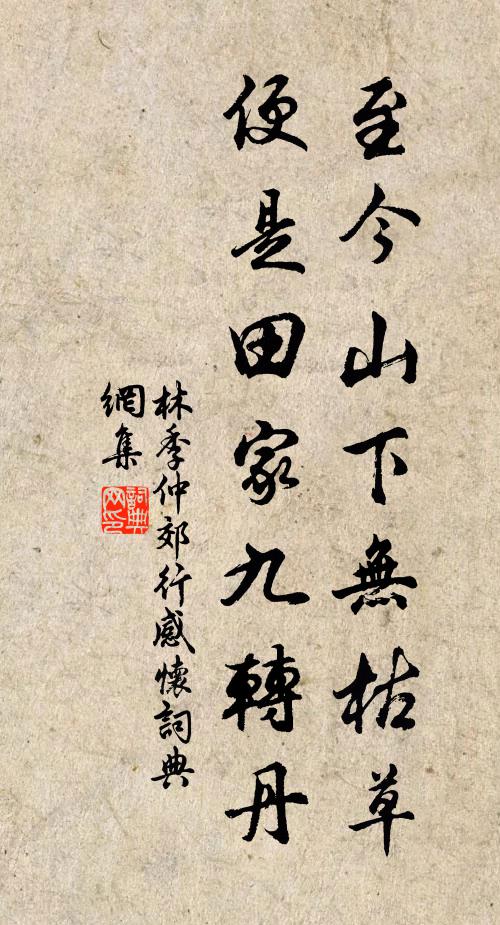 至今山下無枯草
便是田家九轉丹
林季仲郊行感懷詞典
網集
詞典
网印